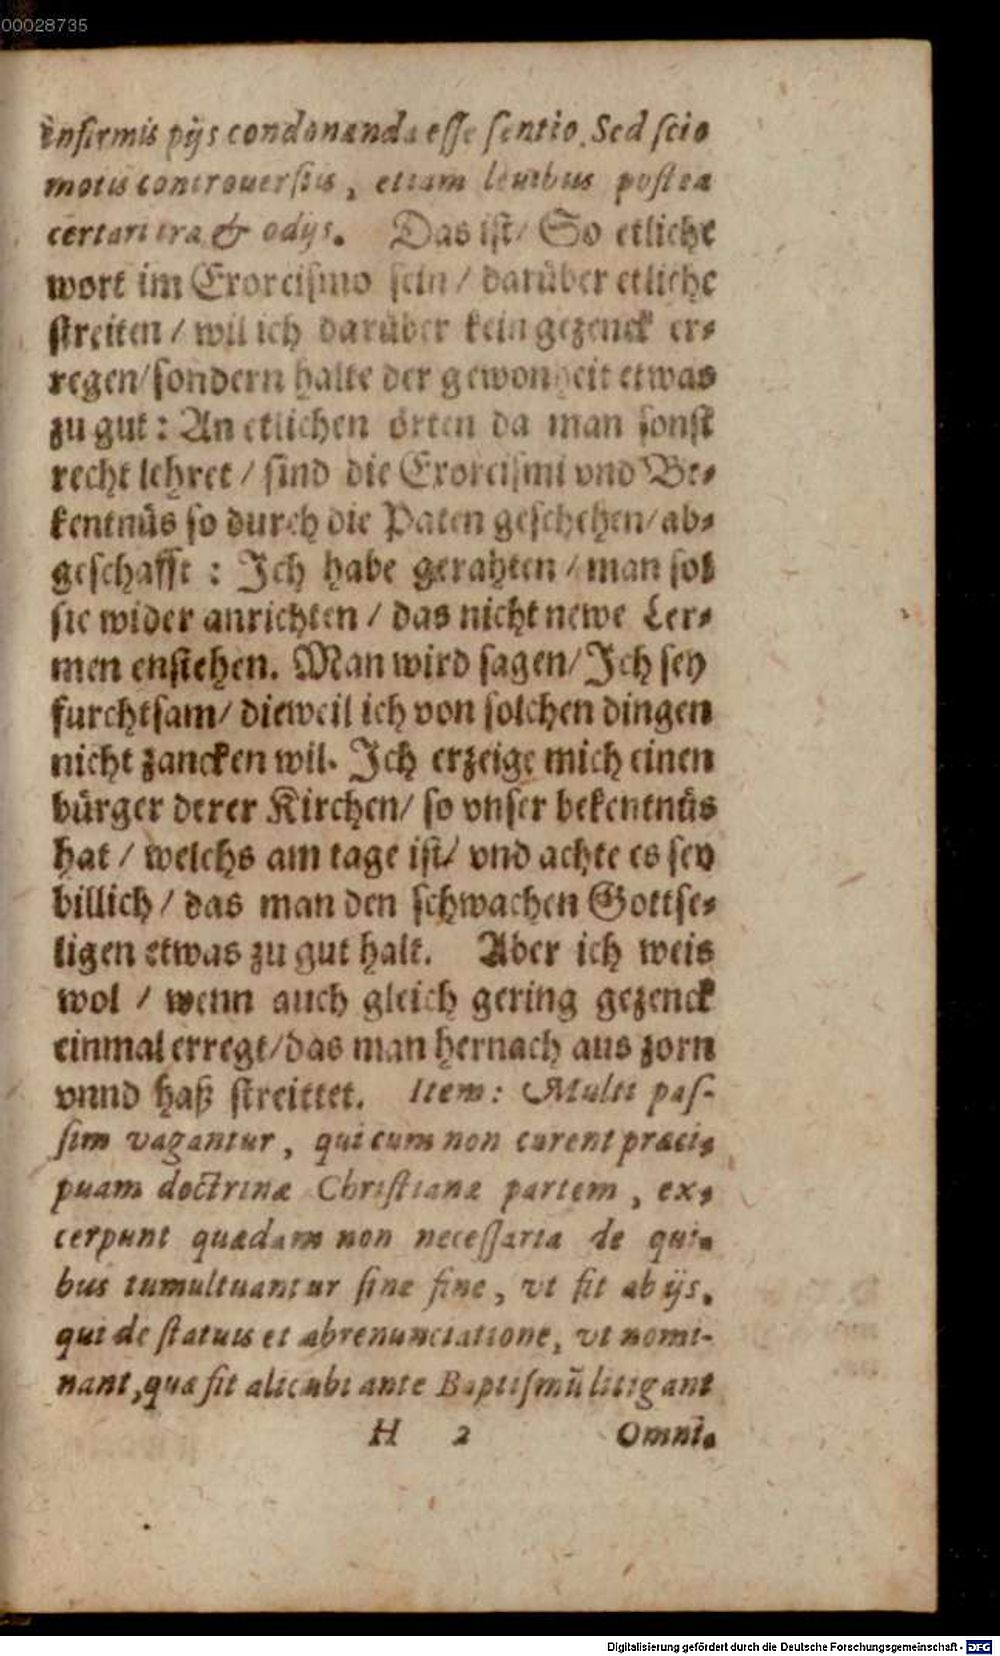 00028735
infirmis pijs condonanda esse sentio. Sed scio
motis controuersiis, etiam leuibus postea
certari ira & odijs. Das ist/ So etliche
wort im Exorcismo sein / darüber etliche
streiten / wil ich darüber kein gezenck er⸗
regen/ sondern halte der gewonheit etwas
zu gut: An etlichen örten da man sonst
recht lehret / sind die Exorcismi vnd Be⸗
kentnüs so durch die Paten geschehen/ ab⸗
geschafft : Ich habe gerahten / man sol
sie wider anrichten / das nicht newe Ler⸗
men enstehen. Man wird sagen/ Ich sey
furchtsam/ dieweil ich von solchen dingen
nicht zancken wil. Ich erzeige mich einen
bürger derer Kirchen/ so vnser bekentnüs
hat / welchs am tage ist/ vnd achte es sey
billich / das man den schwachen Gottse⸗
ligen etwas zu gut halt. Aber ich weis
wol / wenn auch gleich gering gezenck
einmal erregt/ das man hernach aus zorn
vnnd haß streittet. Item: Multi pas-
sim vagantur, qui cum non curent præci⸗
puam doctrinæ Christianæ partem, ex⸗
cerpunt quædam non necessaria de qui⸗
bus tumultuantur sine fine, vt fit ab ijs,
qui de statuis et abrenunciatione, vt nomi-
nant, quæ fit alicubi ante Baptismũ litigant
H 2 Omni⸗
Digitalisierung gefördert durch die Deutsche Forschungsgemeinschaft - DFG